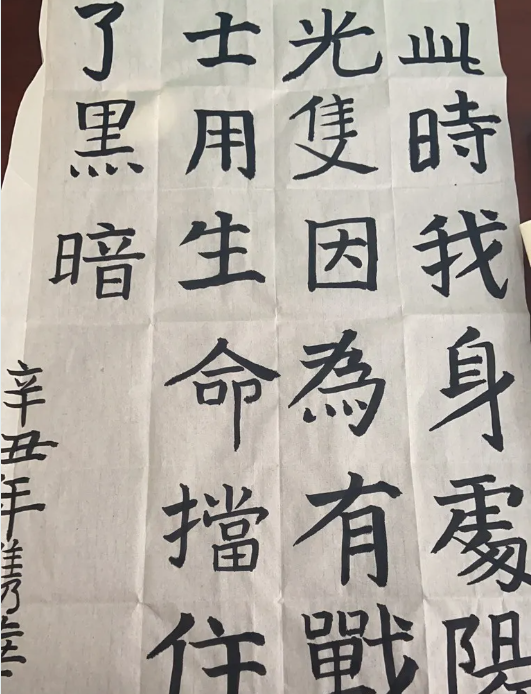 此時我身處陽
光隻因為有戰
士用生命擋住
了黑暗
辛丑年